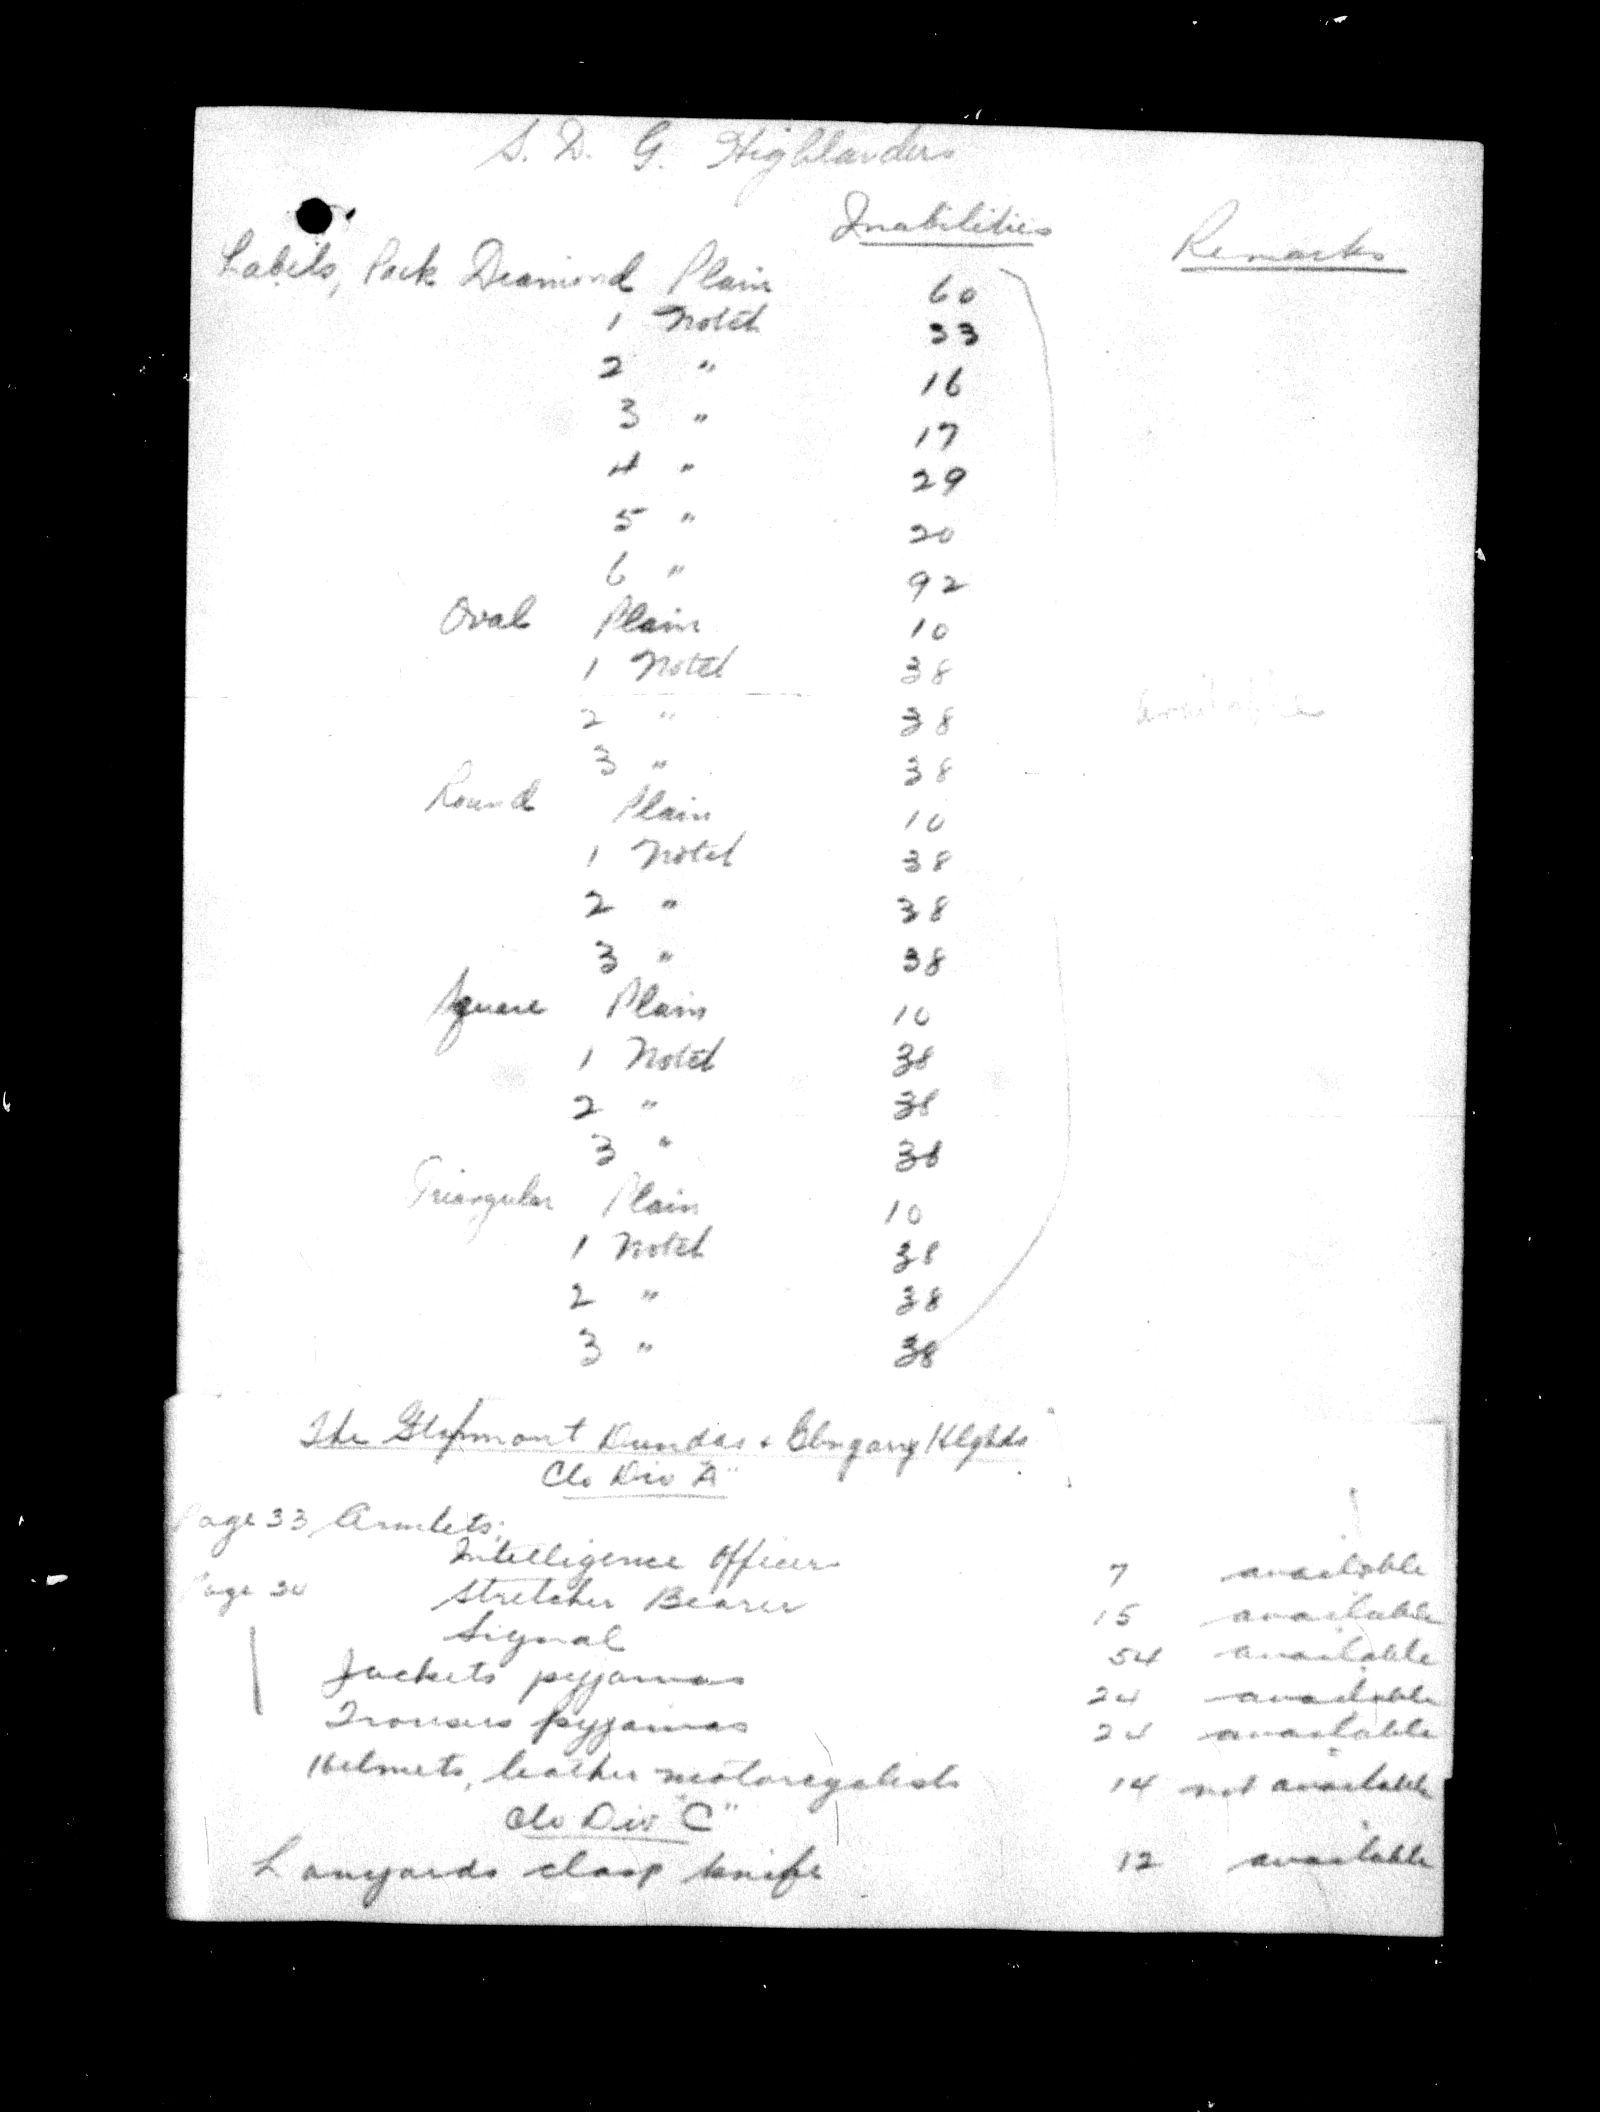 S. D. G. Highlanders
Inabilities Remarks
Labels, Pack Diamond Plain 60
1 Notch 33
2 " 16
3 " 17
4 " 29
5 " 20
6 " 92
Oval Plain 10
1 Notch 38
2 " 38 available
3 " 38
Round Plain 10
1 Notch 38
2 " 38
3 " 38
Square Plain 10
1 Notch 38
2 " 38
3 " 38
Triangular Plain 10
1 Notch 38
2 " 38
3 " 38
The Stormont Dundas + Glengarry
Clo Div "A"
Page 33 Armlets:
Intelligence Officer 7 available
Page 34 Stretcher Bearer 15 available
Signal 54 available
Jackets pyjamas 24 available
Trousers pyjamas 24 available
Helmets, leather motorcyclists 14 not available
Clo Div "C"
Lanyards clasp knife 12 available